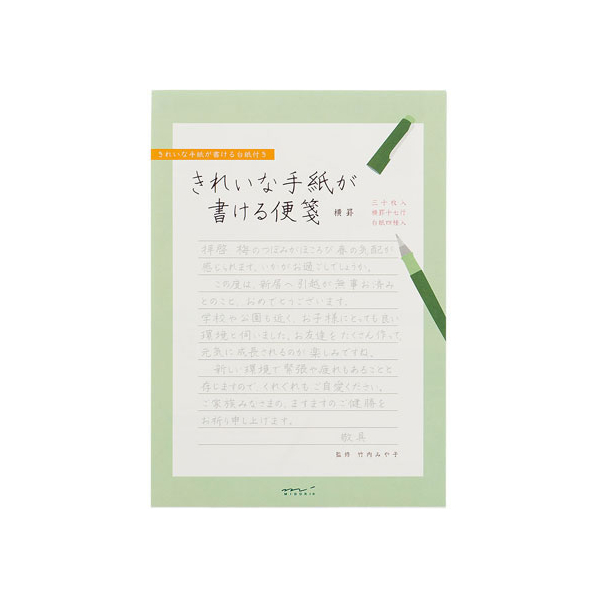 きれいな手紙が書ける台紙付き
きれいな手紙が
書ける便箋 横罫
三十枚入
横罫十七行
台紙四種入
拝啓 梅のつぼみがほころび 春の気配が
感じられます。いかがお過ごしでしょうか。
この度は、新居へ引越が無事お済み
とのこと、おめでとうございます。
学校や公園も近く、お子様にとっても良い
環境と伺いました。お友達をたくさん作って、
元気に成長されるのが楽しみですね。
新しい環境で緊張や疲れもあることと
存じますので、くれぐれもご自愛ください。
ご家族みなさまの、ますますのご健勝を
お祈り申し上げます。
敬具
監修 竹内みや子
MIDORI